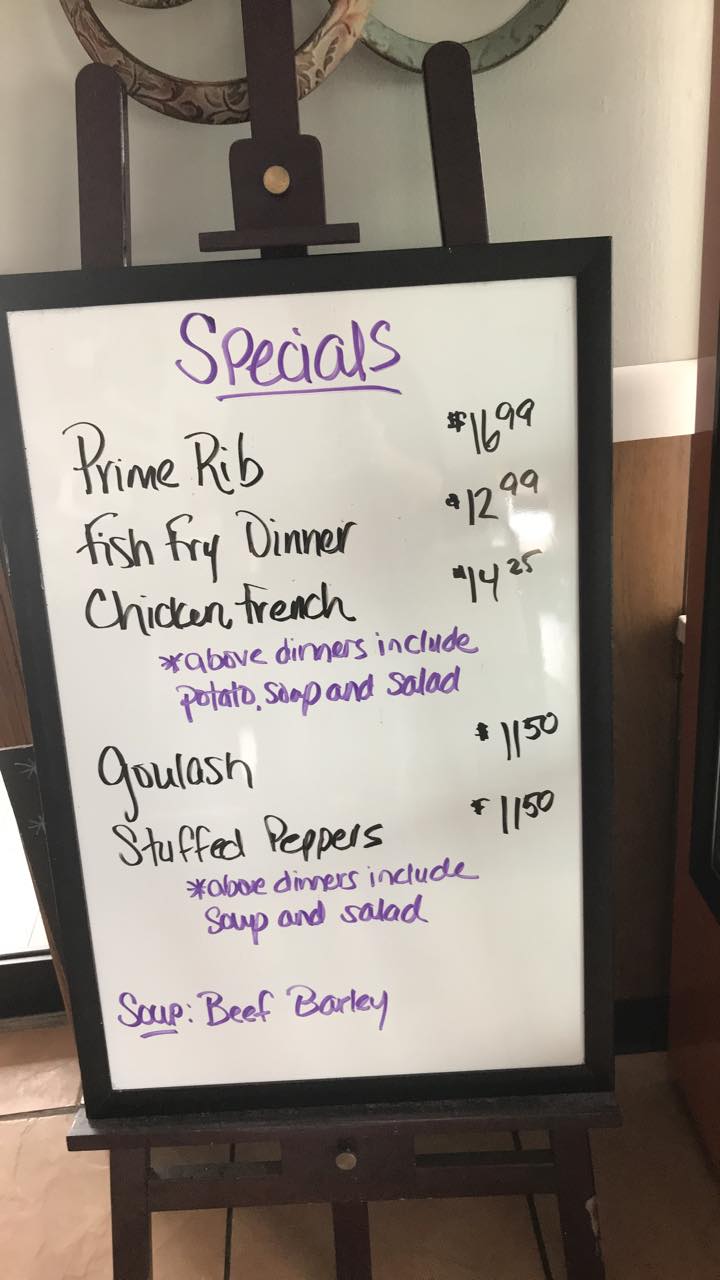 Specials
Prime Rib $16.99
Fish Fry Dinner $12.99
Chicken French $14.25
*above dinners include
potato, soup and salad
Goulash $11.50
Stuffed Peppers $11.50
*above dinners include
Soup and salad
Soup: Beef Barley